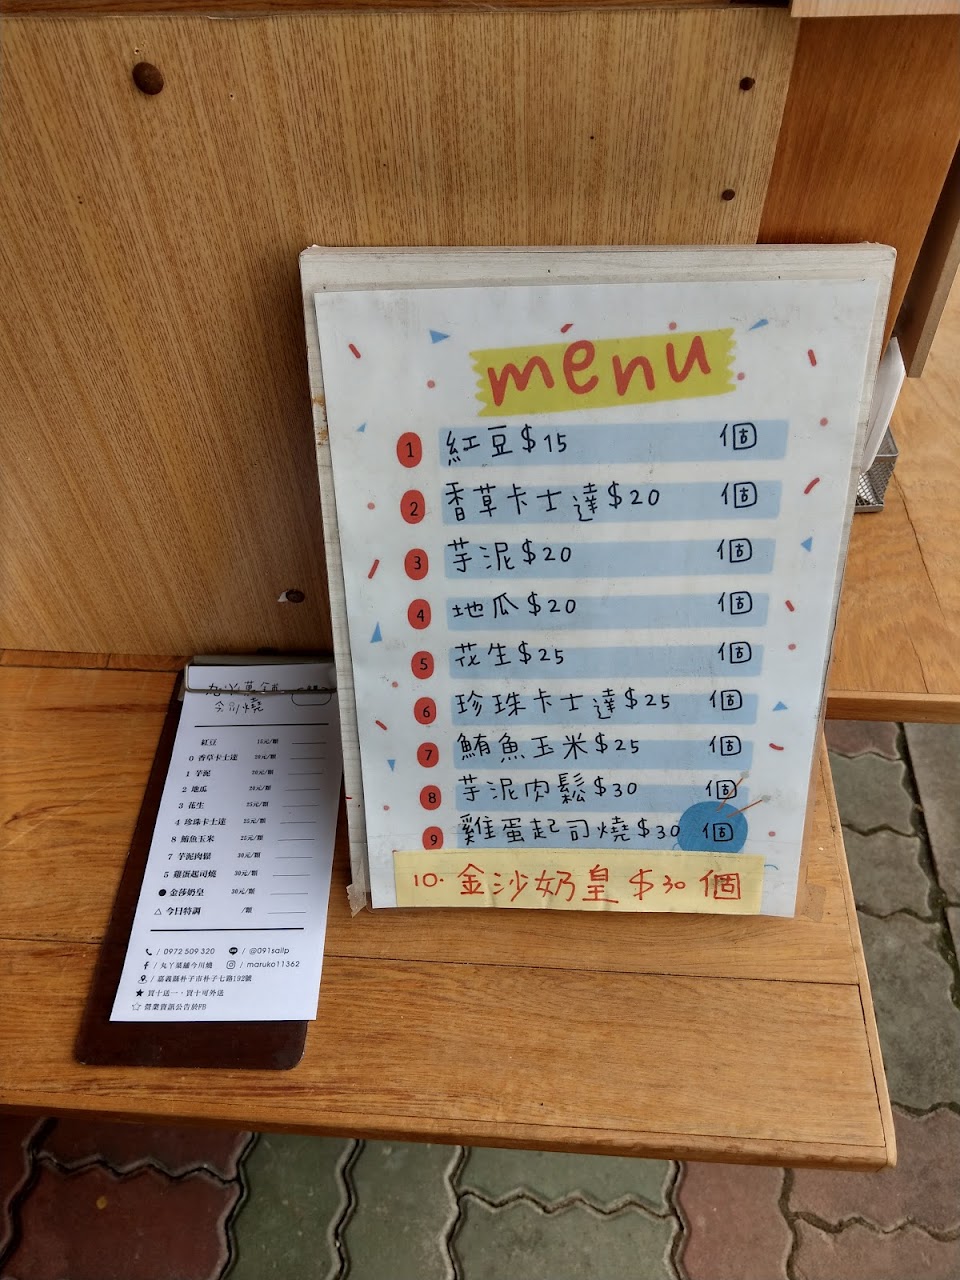 menu
1 紅豆$15 個
2 香草卡士達$20 個
3 芋泥$20 個
4 地瓜$20 個
5 花生$25 個
6 珍珠卡士達$25 個
7 鮪魚玉米$25 個
8 芋泥肉鬆$30 個
9 雞蛋起司燒$30 個
10. 金沙奶皇 $30 個
今川燒
紅豆 15元/顆
0 香草卡士達 20元/顆
1 芋泥 20元/顆
2 地瓜 20元/顆
3 花生 25元/顆
4 珍珠卡士達 25元/顆
8 鮪魚玉米 25元/顆
7 芋泥肉鬆 30元/顆
5 雞蛋起司燒 30元/顆
● 金莎奶皇 30元/顆
△ 今日特調 /顆
/ 0972 509 320 / @091sailp
/ 丸丫菓鋪今川燒 / maruko11362
/ 嘉義縣朴子市朴子七路192號
★ 買十送一、買十可外送
☆ 營業資訊公告於FB